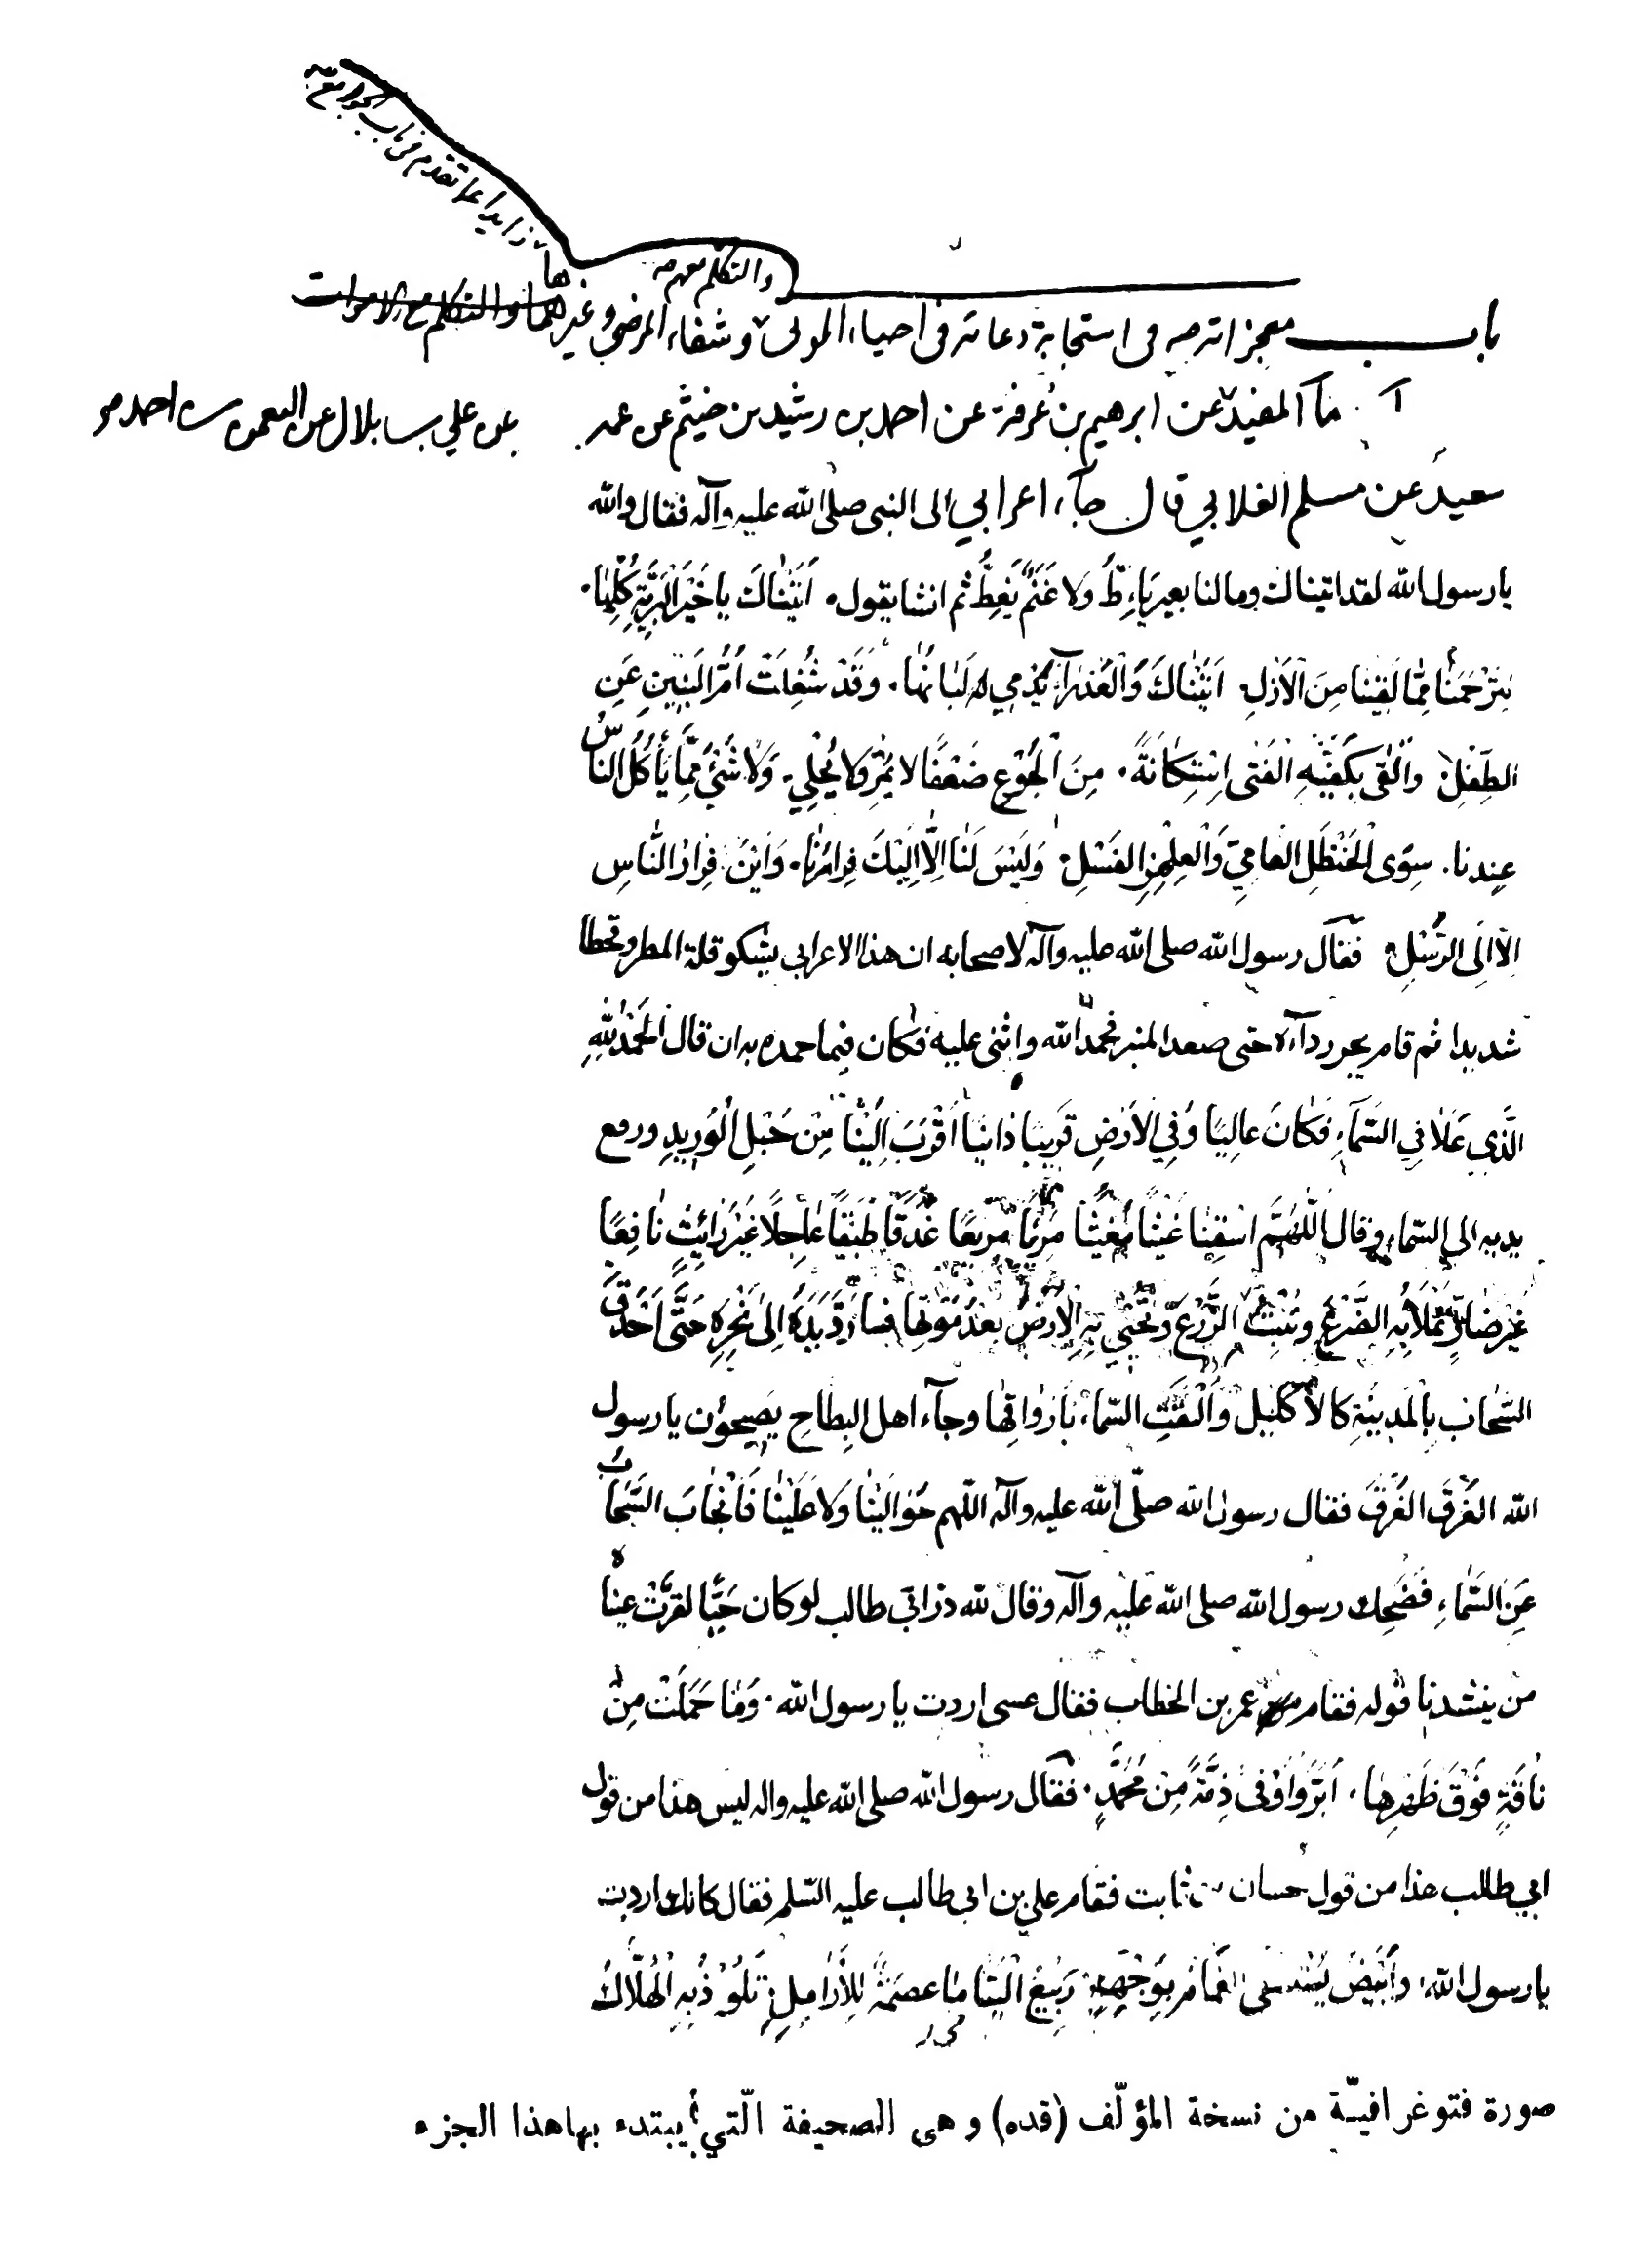 زايدا عما تقدم في باب الجوامع
والتكلم معهم
باب معجزاته ص في استجابة دعائه في احياء الموتى و شفاء المرضى و غيرهما والتكلم مع الاموات
آ ما المفيد عن ابرهيم بن عرفة عن احمد بن رشيد بن خيثم عن عمه
عن علي بن بلال عن النعمن بن احمد
سعيد عن مسلم الغلابي قال جآء اعرابي الى النبي صلى الله عليه وآله فقال والله
يا رسول الله لقد اتيناك ومالنا بعير يَاءِطُّ وَلا غَنَمٌ يَغِطُّ ثم انشا يقول. اَتَيْنٰاكَ يا خَيْرَ الْبَرِيَّةِ كُلِّهٰا.
لِتَرْحَمَنٰا مِمّٰا لَقِينٰا مِنَ الْاَزْلِ اَتَيْنٰاكَ وَالْعَذْرٰآءُ يَدْمىٰ لَبٰانُهٰا. وَقَدْ شُغِلَتْ اُمُّ الْبَنِينِ عَنِ
الطِّفْلِ وَاَلْقٰى بِكَفَّيْهِ الْفَتٰى اِسْتِكٰانَةً. مِنَ الْجُوْعِ ضَعْفًا لا يُمِرُّ وَلا يُحْلِي. وَلا شَيْءَ مِمّٰا يَأْكُلُ النّاسُ
عِندنا. سِوَى الْحَنْظَلِ العٰامِيِّ وَالْعِلْهِزِ الفَسْلِ وَلَيْسَ لَنٰا اِلّا اِلَيْكَ فِرارُنٰا. وَاَيْنَ فِرارُ النّٰاسِ
اِلّا اِلَى الرُّسْلِ فقال رسول الله صلى الله عليه وآله لاصحابه ان هذا الاعرابي يشكو قلة المطر وقحطا
شديدا ثم قام يجر ردآءه حتى صعد المنبر فحمد الله واثنى عليه فكان فيما حمده به ان قال الْحَمْدُ لِلّٰهِ
الَّذِي عَلٰا فِي السَّمٰآءِ فَكٰانَ عالِيًا وَفِي الاَرْضِ قَرِيبًا دٰانِيًا اَقْرَبَ اِلَيْنٰا مِنْ حَبْلِ الْوَرِيدِ ورفع
يديه الى السّماء وقال اللّٰهُمَّ اسْقِنٰا غَيْثًا مُغِيثًا مَرِيئًا مَرِيعًا غَدَقًا طَبَقًا عٰاجِلًا غَيْرَ رٰائِثٍ نٰافِعًا
غَيْرَ ضٰارٍّ تَمْلَأُ بِهِ الضَّرْعَ وَتُنْبِتُ بِهِ الزَّرْعَ وَتُحْيِي بِهِ الاَرْضَ بَعْدَ مَوْتِهٰا فما رَدَّ يَدَهُ اِلىٰ نَحْرِهِ حَتّٰى اَحْدَقَ
السَّحٰابُ بِالْمَدِينَةِ كَالاِكْلِيلِ وَاَلْتَقَتِ السّماءُ بِاَرْوٰاقِهٰا وجآء اهل البِطٰاحِ يَصِيحوُن يا رسول
الله الغَرَقَ الغَرَقَ فقال رسول الله صلّى الله عليه وآله اللّهم حَوٰالَيْنٰا وَلا عَلَيْنٰا فَانْجٰابَ السَّحٰابُ
عَنِ السَّمٰاءِ فَضَحِكَ رسول الله صلى الله عليه وآله وقال لله در ابي طالب لو كان حَيًّا لقَرَّتْ عيناه
من ينشدنا قوله فقام عمر بن الخطاب فقال عسى اردت يا رسول الله. وَمٰا حَمَلَتْ مِنْ
نٰاقَةٍ فَوْقَ ظَهْرِهٰا. اَبَرَّ وَاَوْفىٰ ذِمَّةً مِنْ مُحَمَّدٍ. فقال رسول الله صلى الله عليه واله ليس هذا من قول
ابي طالب هذا من قول حسان بن ثابت فقام علي بن ابي طالب عليه السّلم فقال كانك اردت
يا رسول الله. وَاَبْيَضَ يُسْتَسْقَى الغَمٰامُ بِوَجْهِهِ رَبِيعُ الْيَتٰامىٰ عصمَةٌ لِلْاَرٰامِلِ تَلُوْذُ بِهِ الْهُلّٰاكُ
صورة فتوغرافيّة من نسخة المؤلّف (قده) و هى الصحيفة الّتي يبتدء بها هذا الجزء